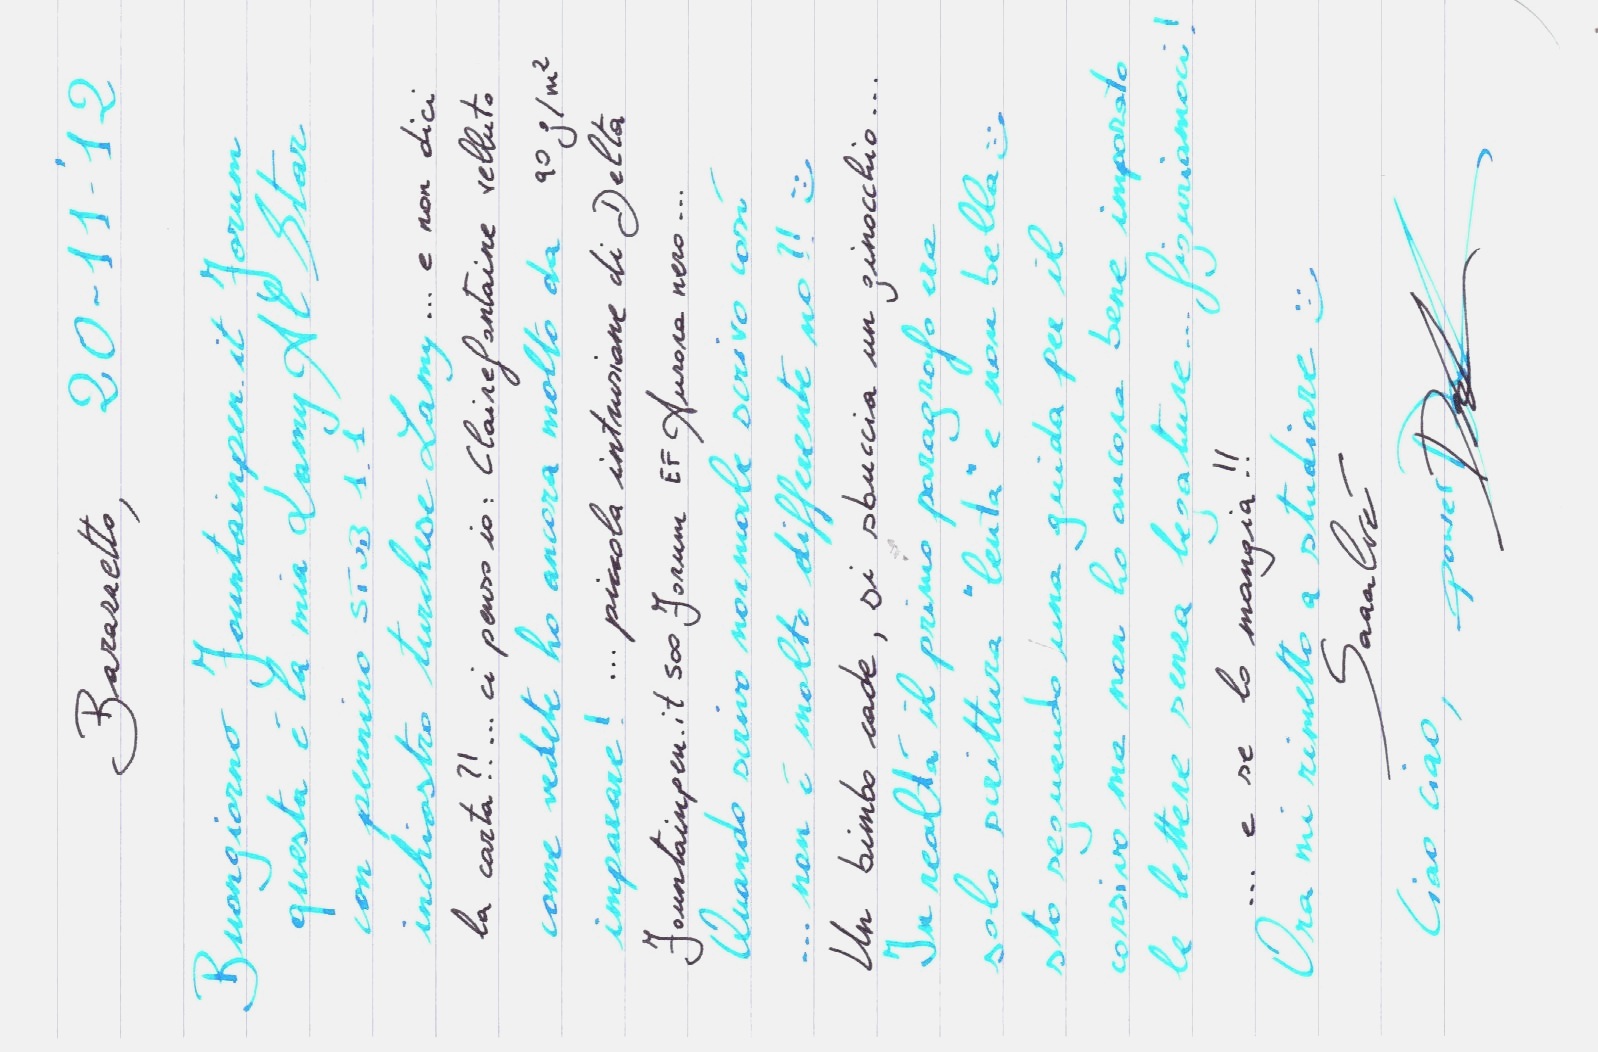 Bararetto, 20-11-'12
Buongiorno Fountainpen.it Forum
questa è la mia Lamy Al Star
con pennino Stub 1.1
inchiostro turchese Lamy... e non dici
la carta?!... ci penso io: Clairefontaine velluto
come vedete ho ancora molto da 90 g/m²
imparare! ... piccola intrusione di Delta
Fountainpen.it 500 Forum EF Aurora nero...
Quando scrivo normale scrivo così
... non è molto differente no?! :)
Un bimbo cade, si sbuccia un ginocchio...
In realtà il primo paragrafo era
solo scrittura "lenta" e non bella :)
sto seguendo una guida per il
corsivo ma non ho ancora bene imparato
le lettere senza legature... figuriamoci!
... e se lo mangia!!
Ora mi rimetto a studiare :)
Ciao ciao,